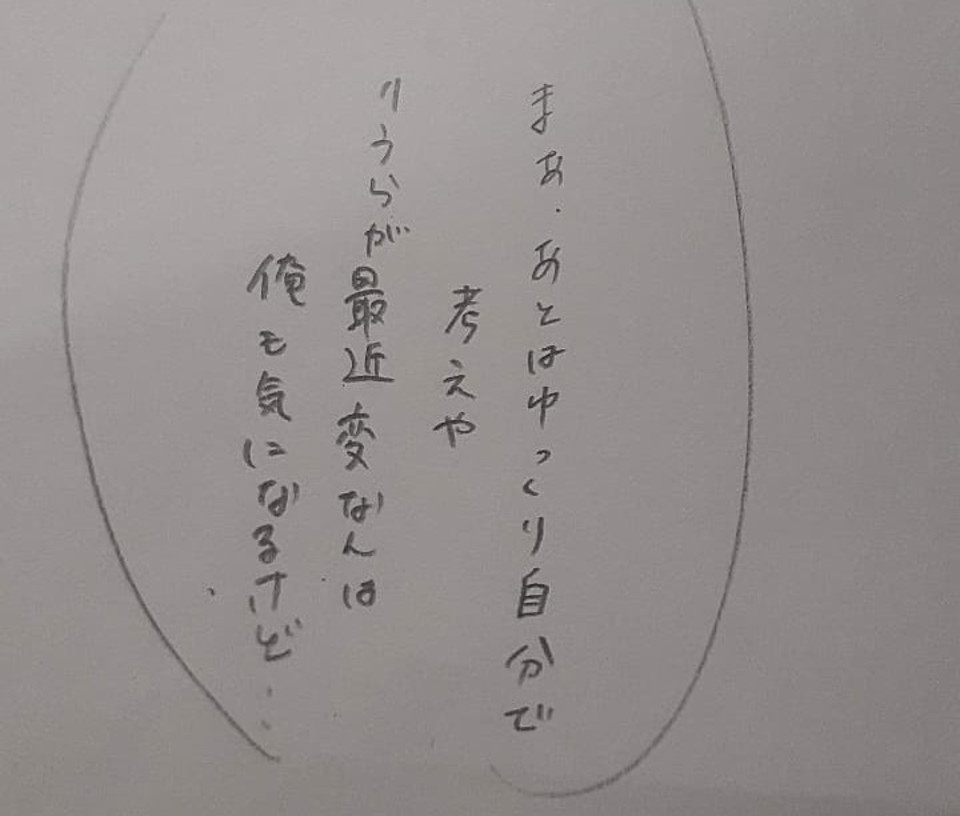 まぁ.あとはゆっくり自分で
考えや
りうらが最近変なんは
俺も気になるけど...